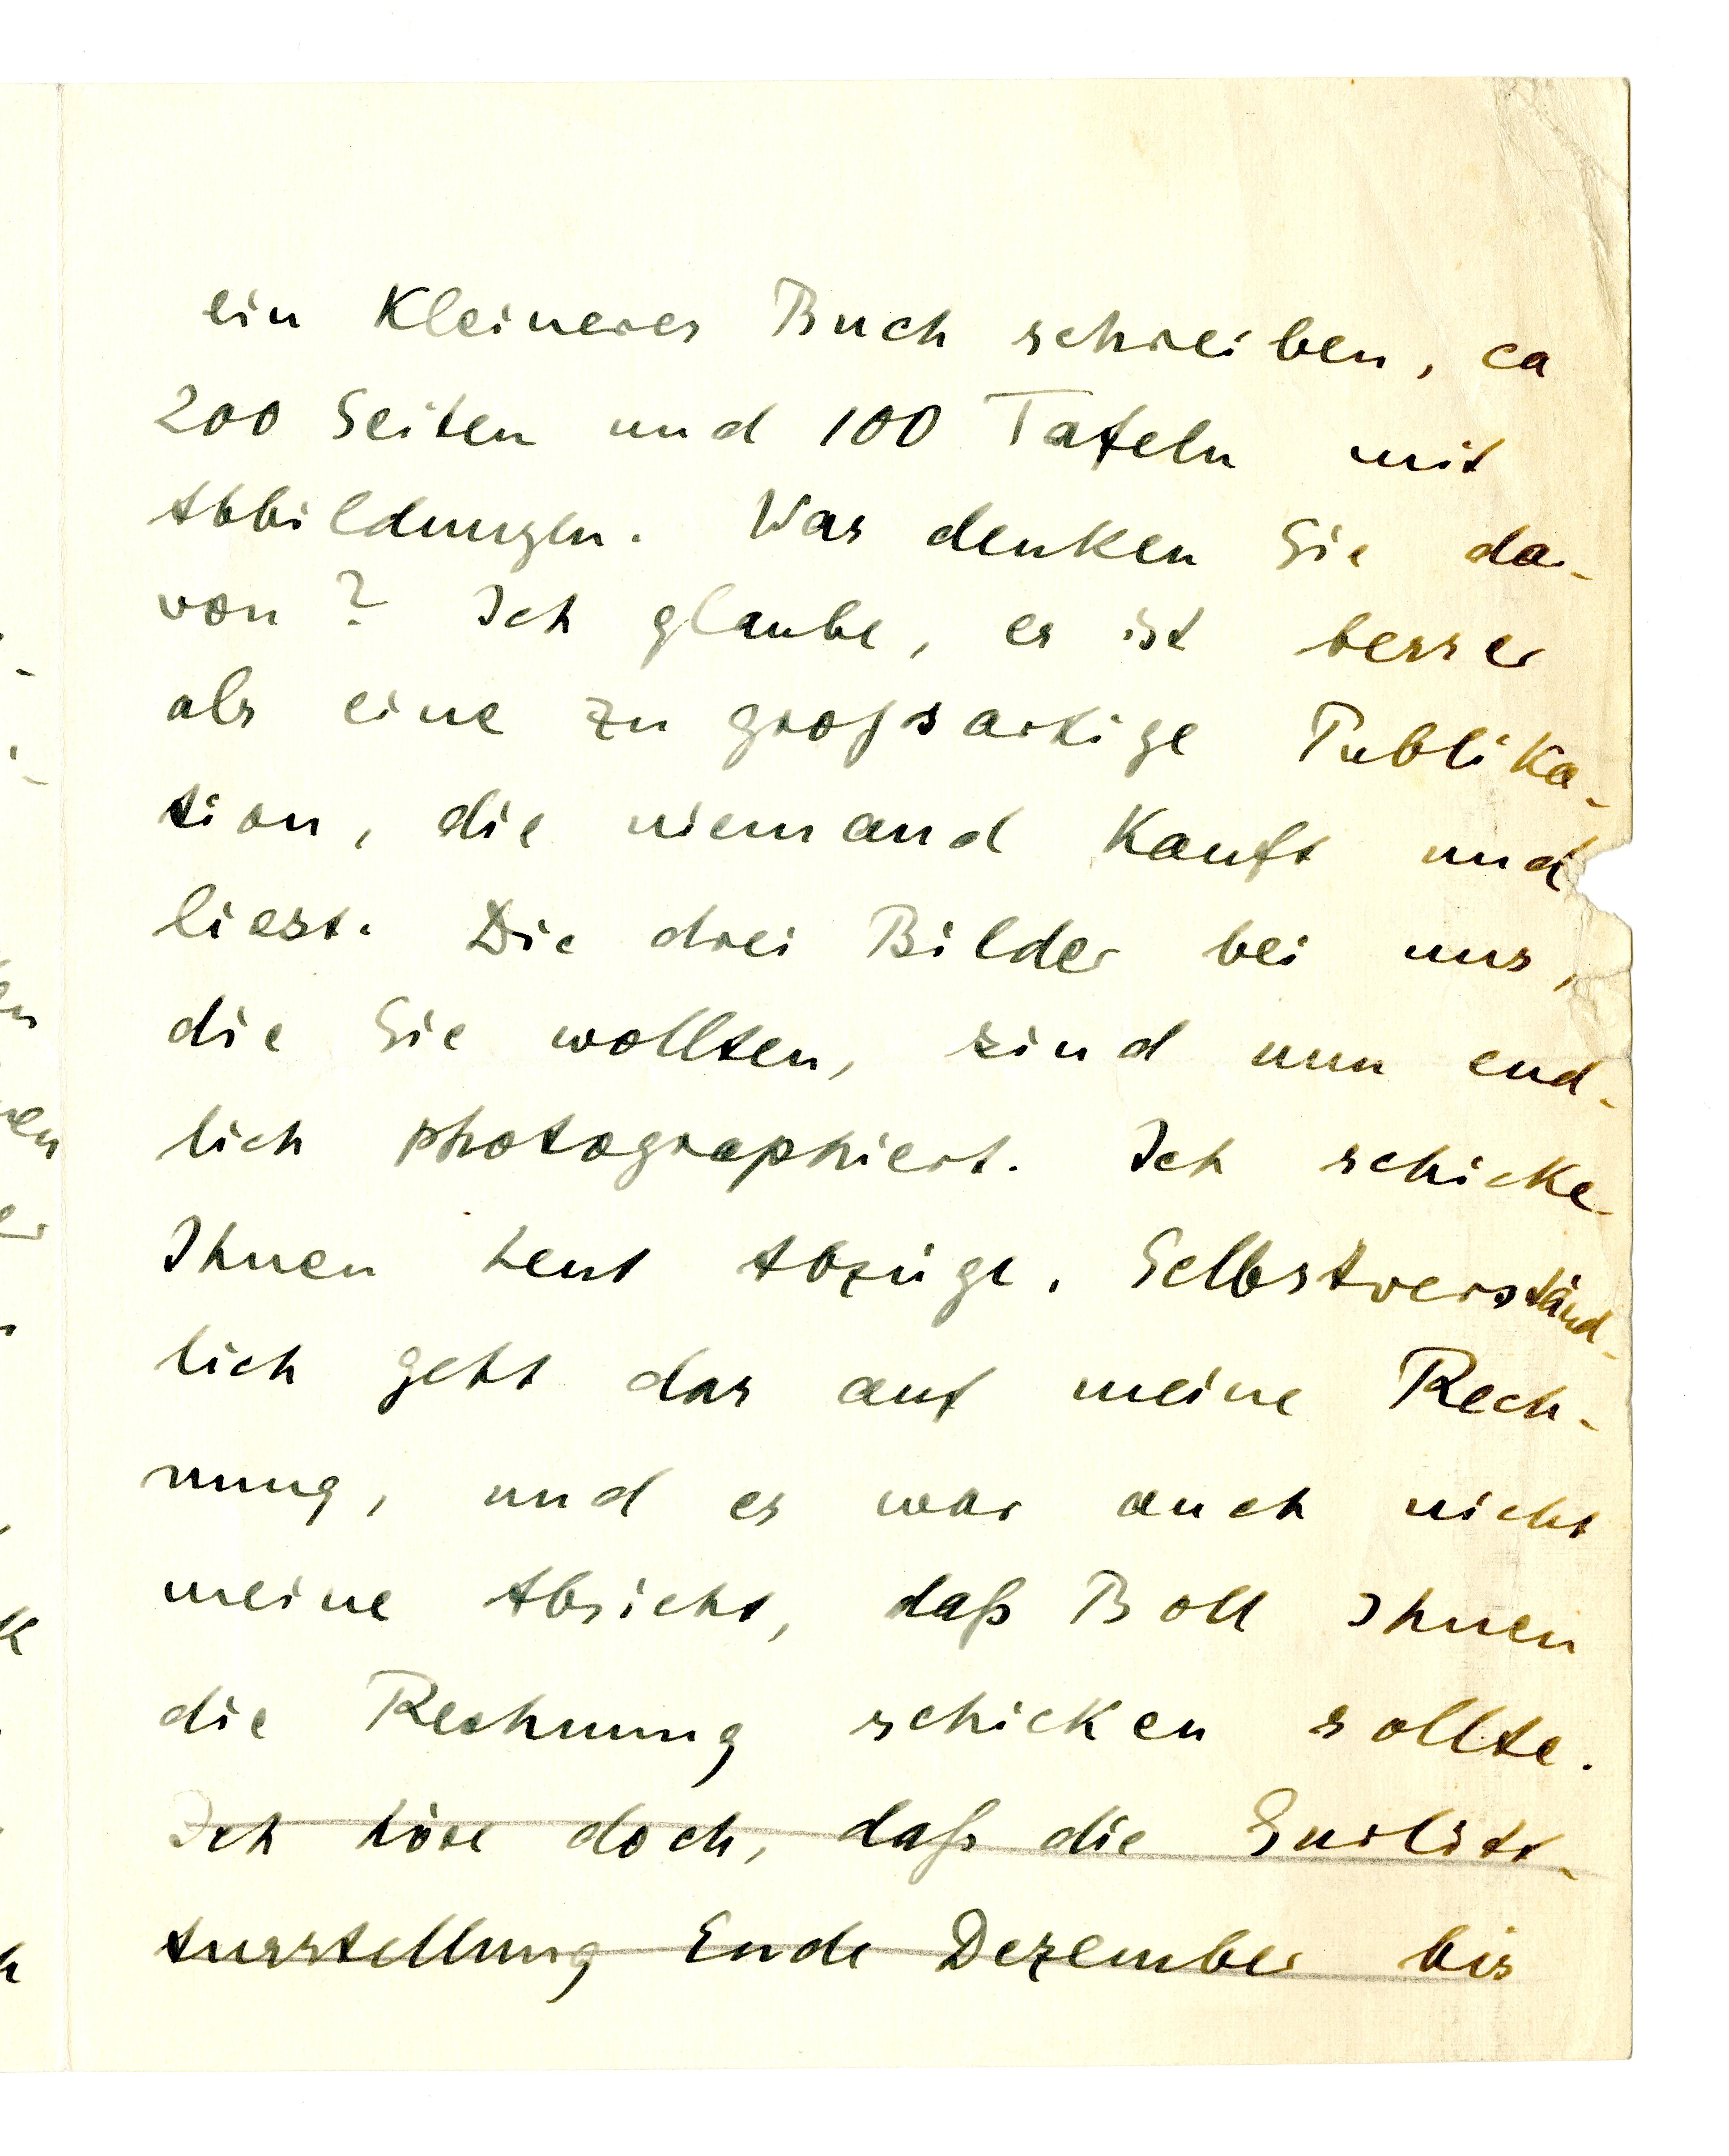 ein kleineres Buch schreiben, ca
200 Seiten und 100 Tafeln mit
Abbildungen. Was denken Sie da-
von? Ich glaube, es ist besser
als eine zu großsartige Publika-
tion, die niemand kauft und
liest. Die drei Bilder bei uns,
die Sie wollten, sind nun end-
lich photographiert. Ich schicke
Ihnen heut Abzüge. Selbstverständ-
lich geht das auf meine Rech-
nung, und es war auch nicht
meine Absicht, daß Boll Ihnen
die Rechnung schicken sollte.
Ich höre doch, daß die Gurlitt-
Ausstellung Ende Dezember bis